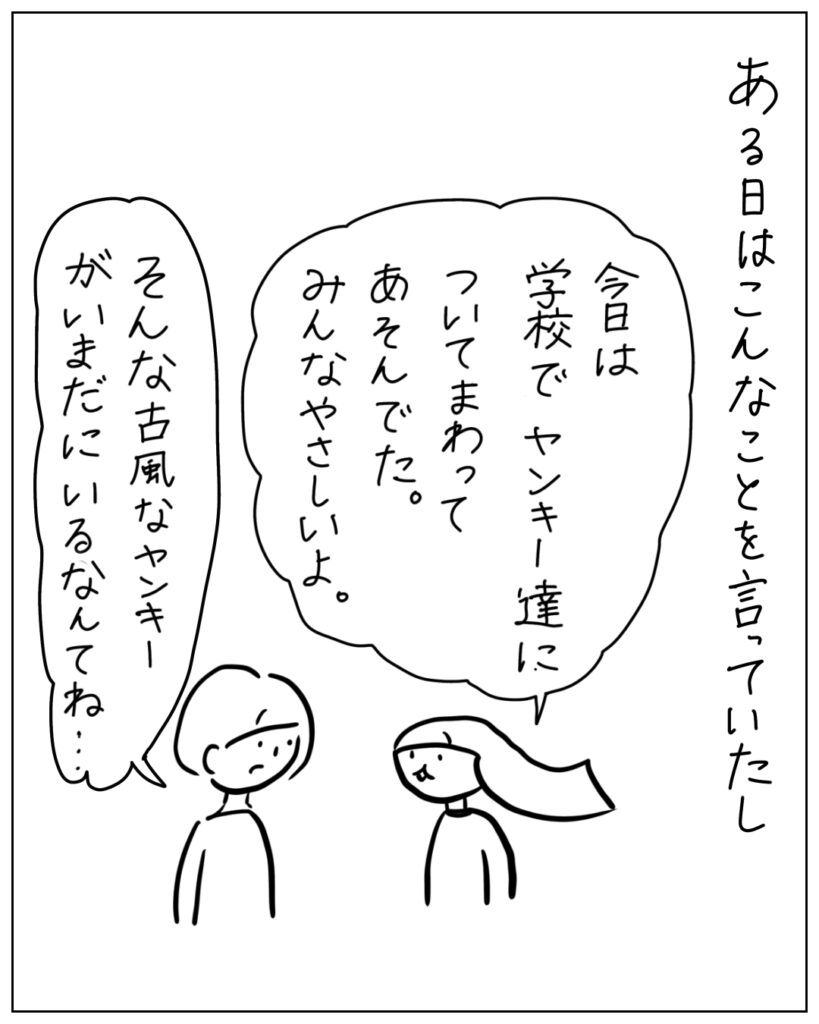 ある日はこんなことを言っていたし
今日は
学校でヤンキー達に
ついてまわって
あそんでた。
みんなやさしいよ。
そんな古風なヤンキー
がいまだにいるなんてね…